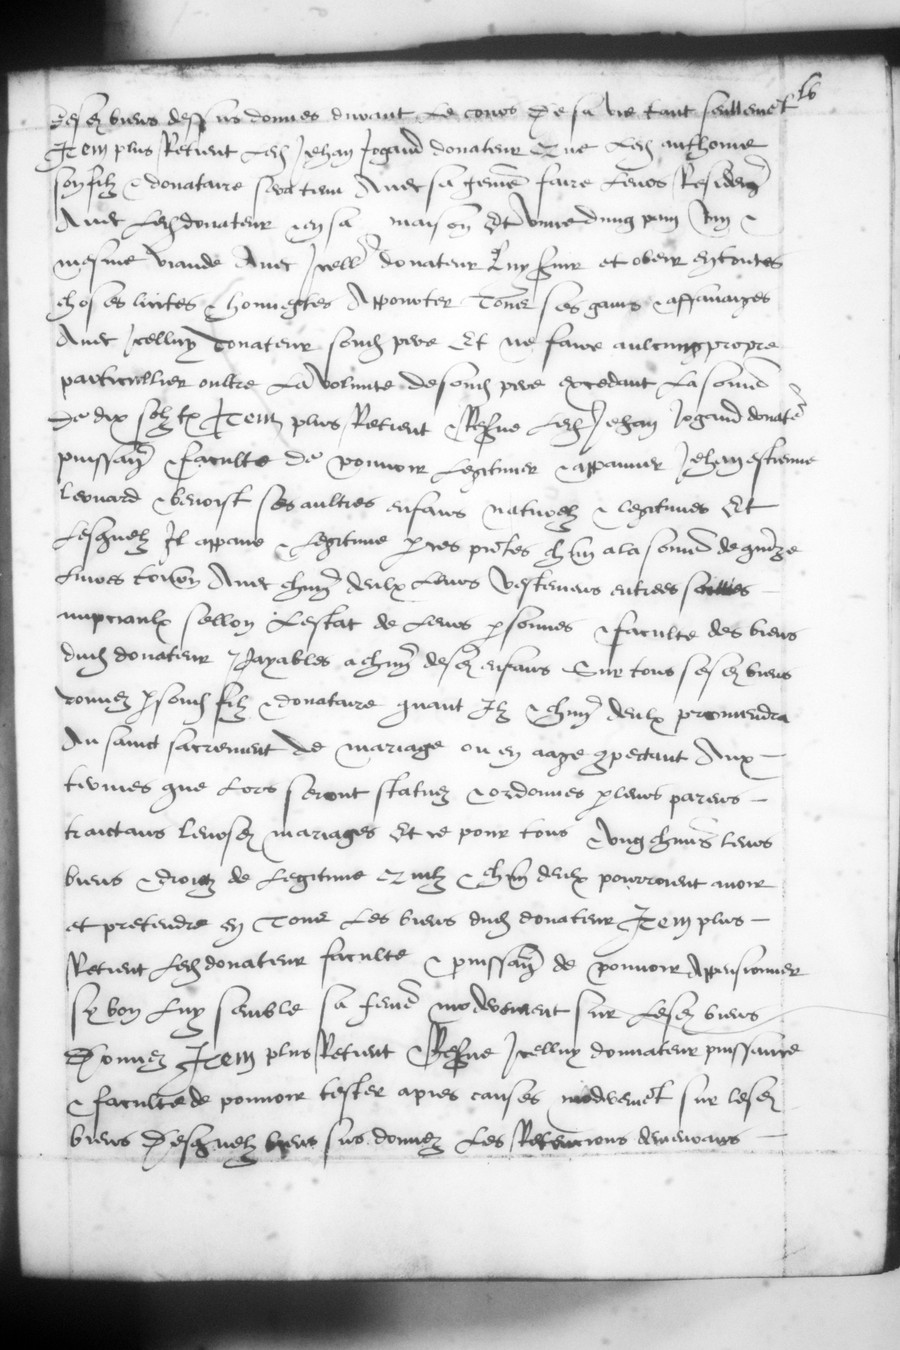 lv
desd biens dessus donnes durant le cours de sa vie tant seullemet
Item plus Retient led Jehan Jogand donateur que led anthoine
son filz & donataire soit tenu Avec sa feme faire leurs Residen
Avec led donateur & en sa maison Et vivre dung pain vin &
mesme viande Avec icell donateur luy s&vir et obeir en toutes
choses licites & honnestes Apporter tous ses gains & affanaiges
Avec icelluy donateur sond pere Et ne faire aulcung propre
particullier oultre la volunte de sond pere excedant la some
de dix solz tz Item plus Retient Res&ve led Jehan Jogand donate
puissan & faculte de pouvoir legitimer & appaner Jehan estienne
leonard & benoist ses aultres enfans naturelz & legitimes Et
lesquelz Il appane & legitime p ces pntes chun a la some de quize
livres torn Avec chun deulx leurs vestemens
nupciaulx sellon lestat de leurs psonnes & faculte des biens
dud donateur payables a chun desd enfans sur tous sesd biens
donnez p sond filz & donataire quant Ilz & chun deulx parviendra
Au sainct sacrement de mariage ou en aage competant Aux
termes que lors seront statuez & ordonnes p leurs parens
traictans leursd mariages Et ce pour tous & ung chuns leurs
biens & droictz de legitime & chun deulx pourroient avoir
et pretendre en tous les biens dud donateur Item plus
Retient led donateur faculte & puissan de pouvoir Appensionner
sy bon luy semble sa feme moderement sur lesd biens
Donnez Item plus Retient Res&ve icelluy donnateur puissance
& faculte de pouvoir tester a pies causes moderemet sur lesd
biens Desquelz biens sus donnez les Retencions demeurans